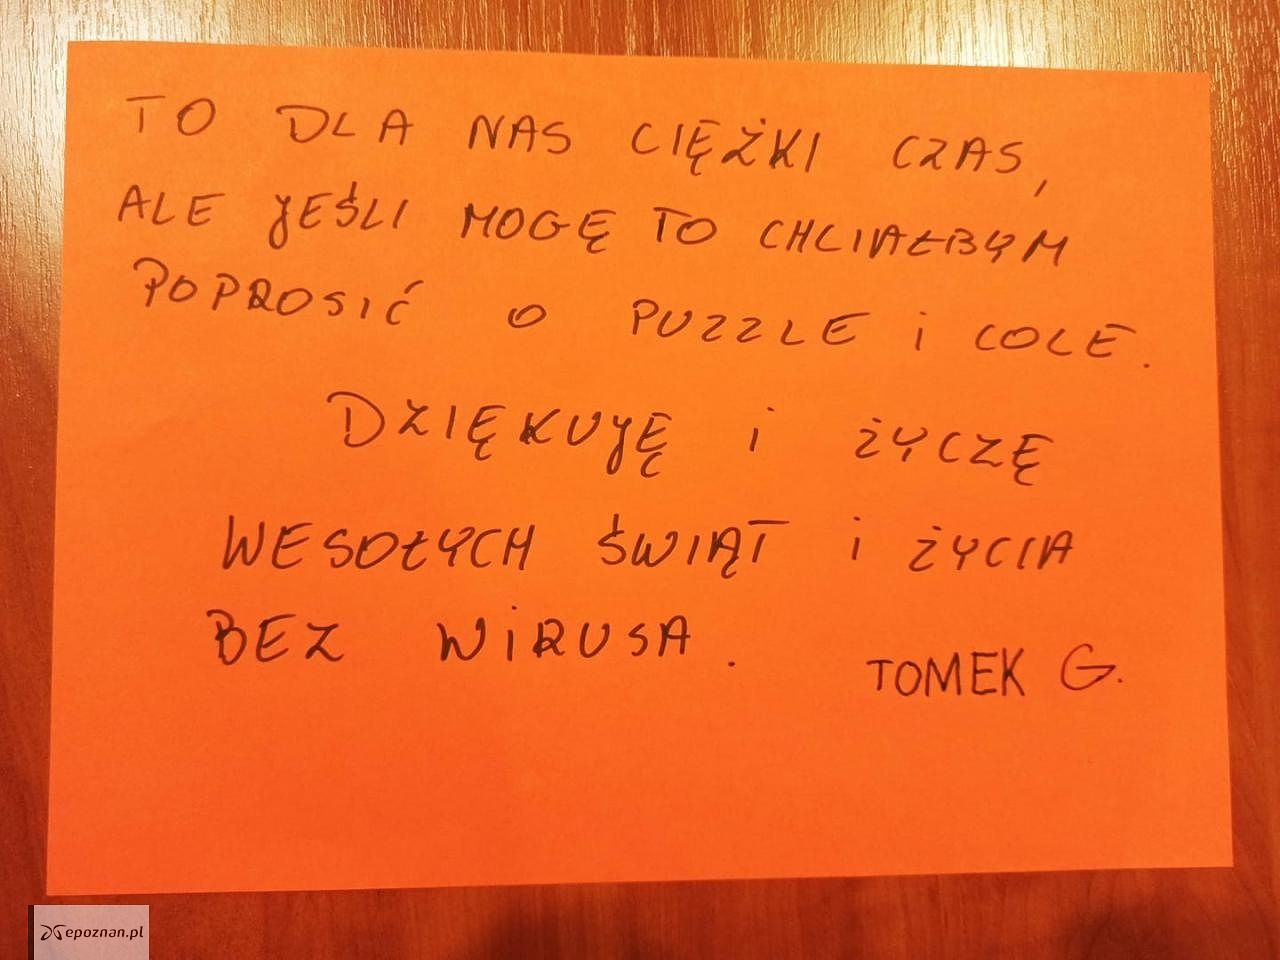 TO DLA NAS CIĘŻKI CZAS,
ALE JEŚLI MOGĘ TO CHCIAŁBYM
POPROSIĆ O PUZZLE i COLE.
DZIĘKUJĘ i ŻYCZĘ
WESOŁYCH ŚWIĄT i ŻYCIA
BEZ WiRUSA.
TOMEK G.
epoznan.pl